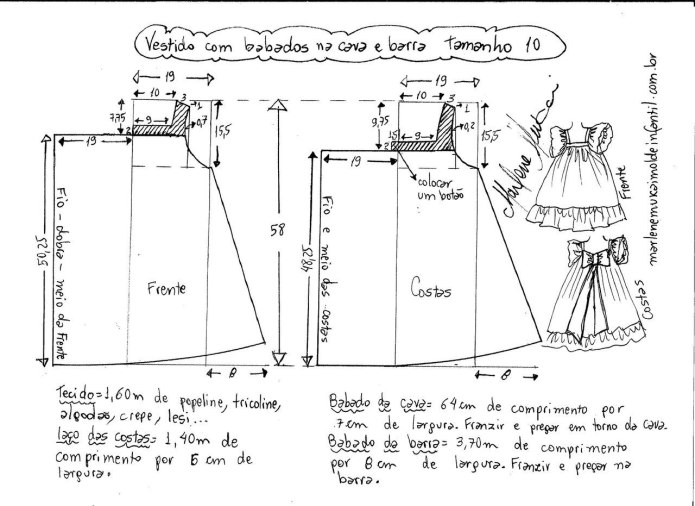 Vestido com babados na cava e barra Tamanho 10
19
10
3
1
7,75
9
2
0,7
15,5
19
58
50,5
Fio - dobra - meio da Frente
Frente
8
19
10
3
1
9,75
1,5
9
2
0,2
15,5
19
colocar
um botão
48,5
Fio e meio das costas
Costas
8
Marlene Mukai
Frente
Costas
marlenemukaimoldeinfantil.com.br
Tecido=1,60m de popeline, tricoline,
algodão, crepe, lesi...
laço das costas= 1,40m de
comprimento por 5 cm de
largura.
Babado da cava= 64cm de comprimento por
7cm de largura. Franzir e pregar em torno da cava.
Babado da barra= 3,70m de comprimento
por 8cm de largura. Franzir e pregar na
barra.